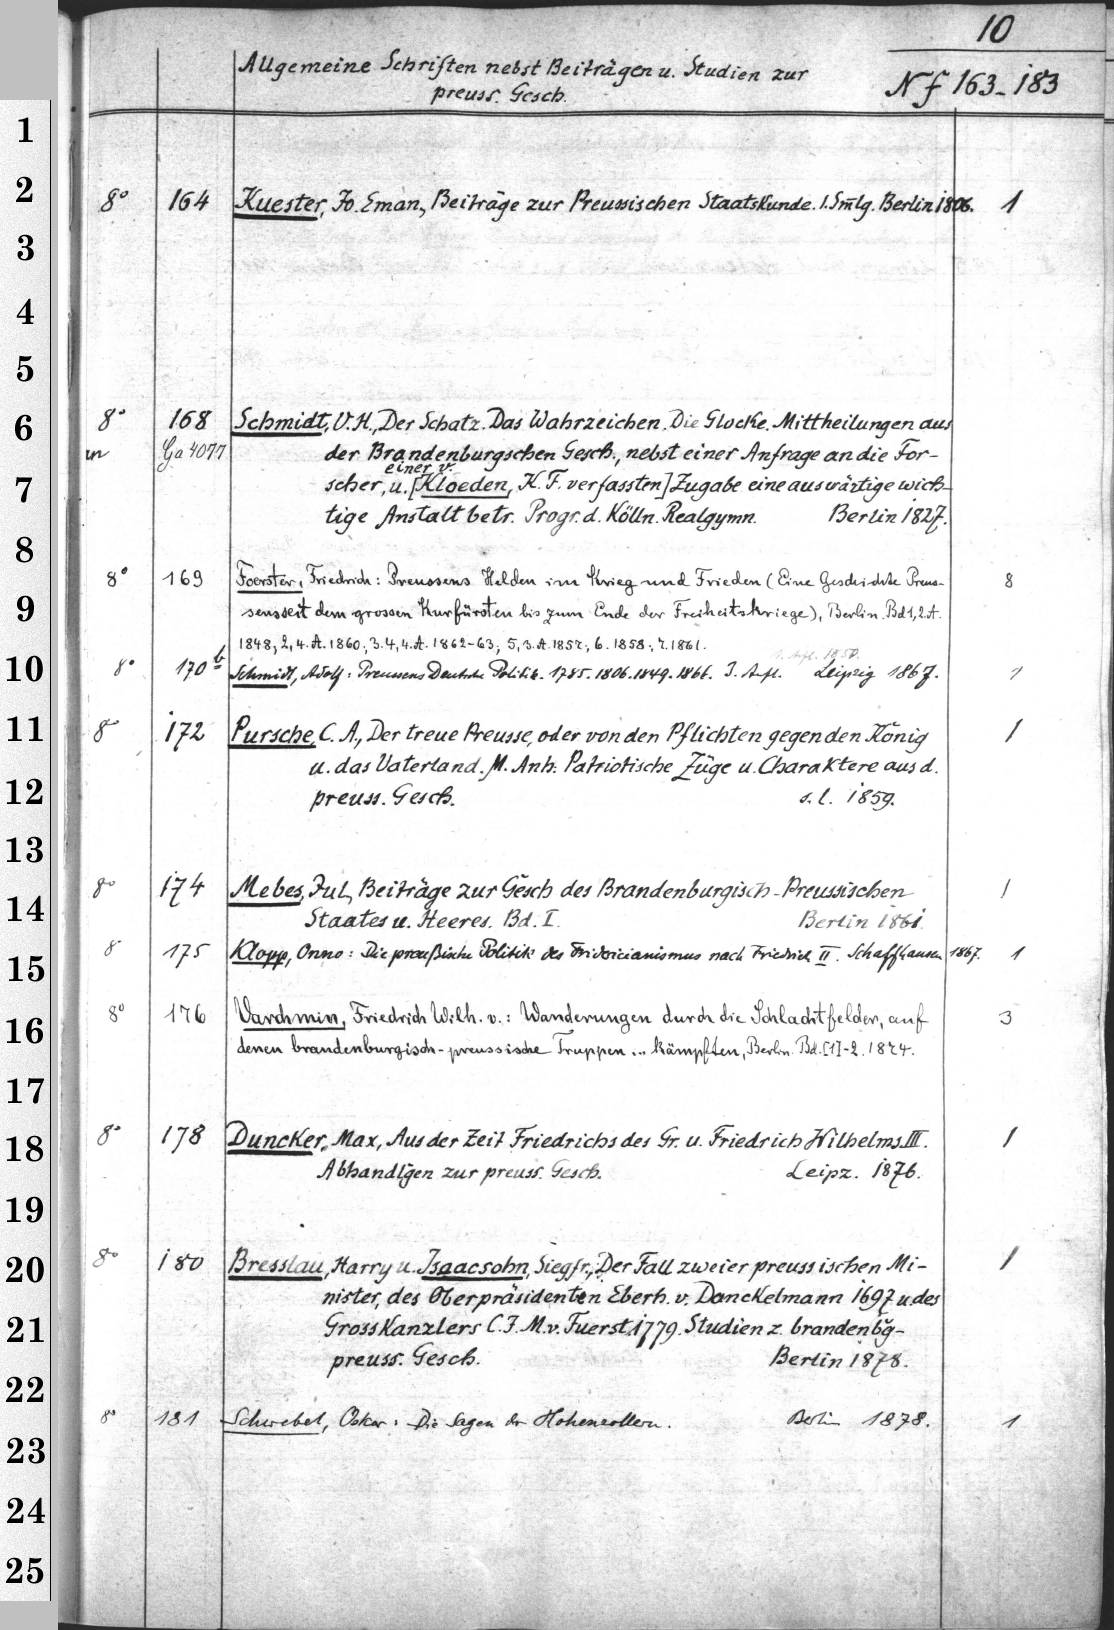 10
Allgemeine Schriften nebst Beiträgen u. Studien zur
preuss. Gesch.
Nf 163-183
1
2
8° 164 Kuester, Jo. Eman., Beiträge zur Preussischen Staatskunde. 1. Sm̅lg. Berlin 1806. 1
3
4
5
6
8° 168 Schmidt, V. H., Der Schatz. Das Wahrzeichen. Die Glocke. Mittheilungen aus
an Ga 4077 der Brandenburgschen Gesch., nebst einer Anfrage an die For-
einer v.
7
scher, u. [Kloeden, K. F. verfassten] Zugabe eine auswärtige wich-
tige Anstalt betr. Progr. d. Kölln. Realgymn. Berlin 1827.
8
8° 169 Foerster, Friedrich: Preussens Helden im Krieg und Frieden (Eine Geschichte Preus- 8
9
sens seit dem grossen Kurfürsten bis zum Ende der Freiheitskriege), Berlin. Bd 1, 2. A.
1848; 2, 4. A. 1860; 3. 4, 4. A. 1862-63; 5, 3. A. 1857; 6. 1858; 7. 1861.
1. Aufl. 1850.
10
8° 170b Schmidt, Adolf: Preussens Deutsche Politik. 1785. 1806. 1849. 1866. 3. Aufl. Leipzig 1867. 1
11
8° 172 Pursche, C. A., Der treue Preusse, oder von den Pflichten gegen den König 1
u. das Vaterland. M. Anh. Patriotische Züge u. Charaktere aus d.
12
preuss. Gesch. s. l. 1859.
13
8° 174 Mebes, Jul., Beiträge zur Gesch des Brandenburgisch-Preussischen 1
14
Staates u. Heeres. Bd. I. Berlin 1861.
15
8° 175 Klopp, Onno: Die preußische Politik des Fridericianismus nach Friedrich II. Schaffhausen 1867. 1
16
8° 176 Varchmin, Friedrich Wilh. v.: Wanderungen durch die Schlachtfelder, auf 3
denen brandenburgisch-preussische Truppen ... kämpften, Berlin. Bd. [1]-2. 1874.
17
18
8° 178 Duncker, Max, Aus der Zeit Friedrichs des Gr. u. Friedrich Wilhelms III. 1
Abhandlgen zur preuss. Gesch. Leipz. 1876.
19
20
8° 180 Bresslau, Harry u. Isaacsohn, Siegfr., Der Fall zweier preussischen Mi- 1
nister, des Oberpräsidenten Eberh. v. Danckelmann 1697 u. des
21
Grosskanzlers C. J. M. v. Fuerst 1779. Studien z. brandenbg-
preuss. Gesch. Berlin 1878.
22
8° 181 Schwebel, Oskar: Die Sagen der Hohenzollern. Berlin 1878. 1
23
24
25